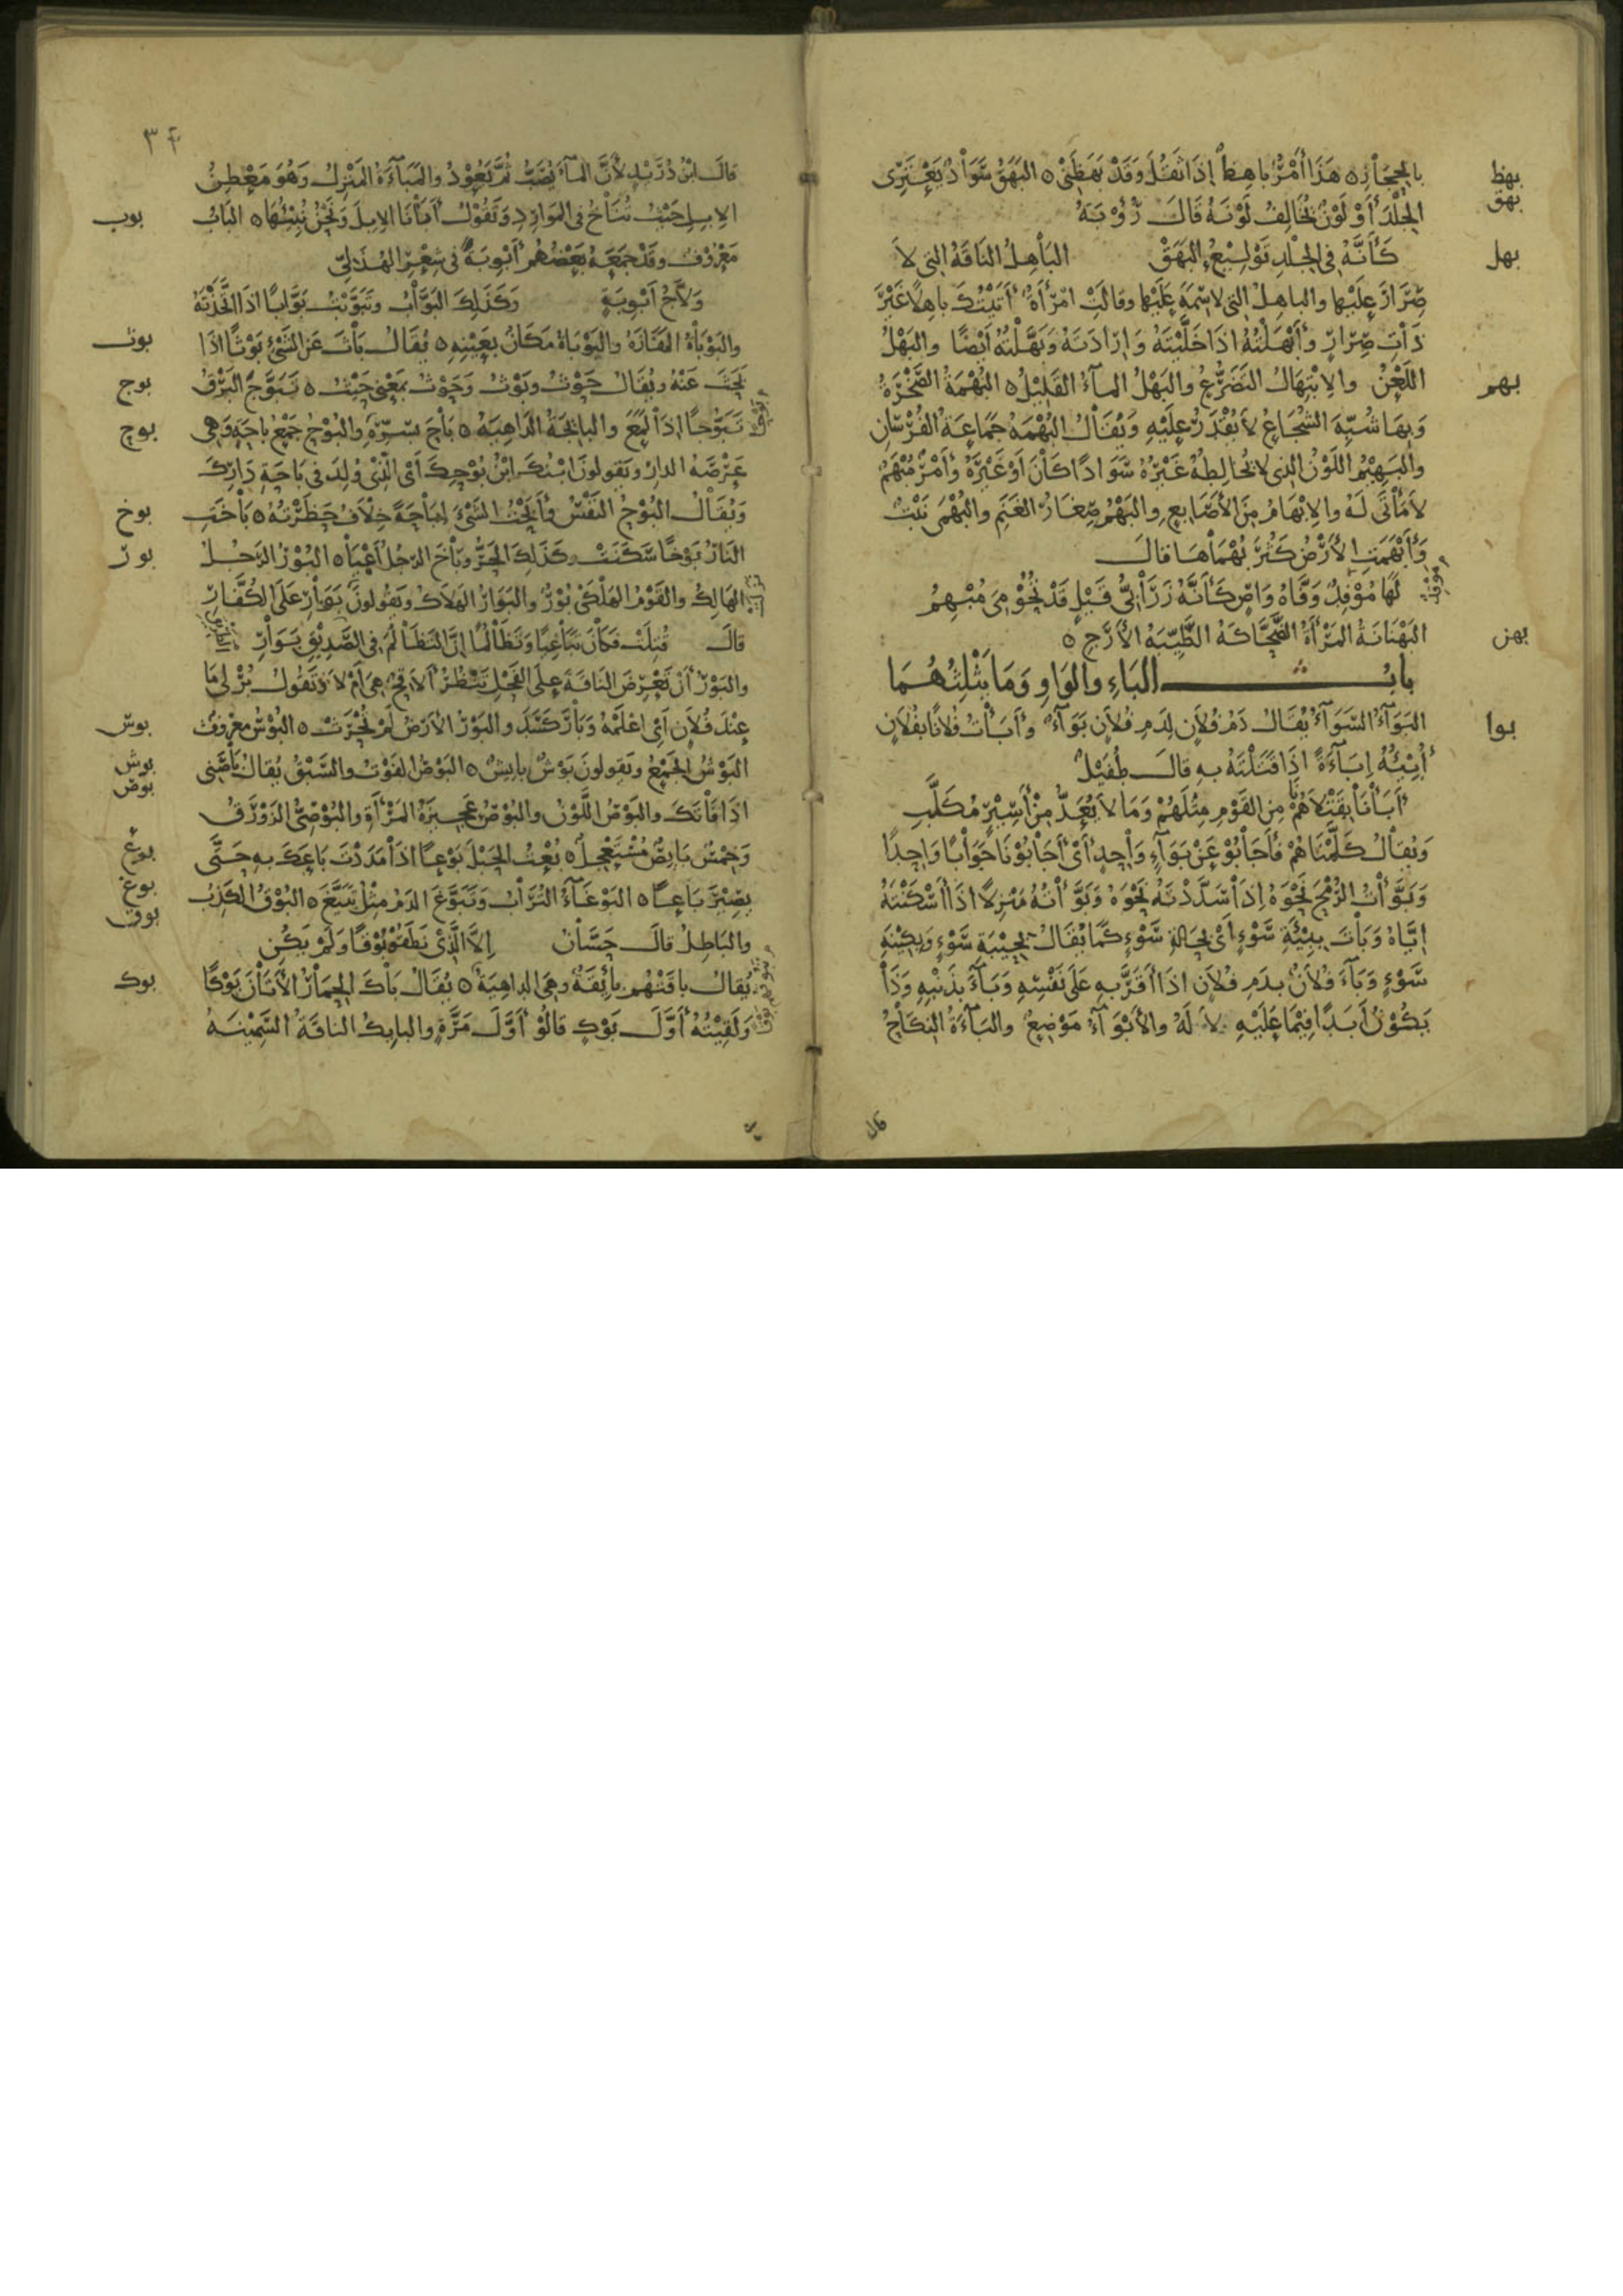 بهظ
بالحجاز ه هَذَا أَمْرٌ بَاهِظٌ إِذَا ثَقُلَ وَقَدْ بَهَظَنِي ه البَهَقُ سَوَادٌ يَعْتَرِي
بهق
الجِلْدَ أَوْ لَوْنٌ يُخَالِفُ لَوْنَهُ قَالَ رُؤْبَةُ
بهل
كَأَنَّهُ فِي الجِلْدِ تَوْلِيْعُ البَهَقْ البَاهِلُ النَاقَةُ التي لاَ
صِرَارَ عَلَيْهَا والباهِلُ التي لا سِمَةَ عَلَيْهَا وقالَتْ امْرَأَةٌ أَتَيْتُكَ باهِلًا غَيْرَ
ذَاتِ صِرَارٍ وَأَبْهَلْتُهُ اذَا خَلَّيْتَهُ وَإِرَادَتَهُ وَبَهَلْتُهُ أَيْضًا والبَهْلُ
بهم
اللَعْنُ والاِبْتِهَالُ التَضَرُّعُ والبَهْلُ المآءُ القَلِيْلُ ه البُهْمَةُ الصَّخْرَةُ
وَبِهَا شُبِّهَ الشُجَاعُ لاَ يُقْدَرُ عَلَيْهِ وَيُقَالُ البُهْمَةُ جَمَاعَةُ الفُرْسَانِ
والبَهِيْمُ اللَوْنُ الذِي لا يُخَالِطُهُ غَيْرُهُ سَوَادًا كَانَ اَوْ غَيْرَهُ وَأَمْرٌ مُبْهَمٌ
لاَ مَأْتَى لَهُ والاِبْهَامُ مِنَ الأَصَابِعِ والبَهْمُ صِغَارُ الغَنَمِ والبُهْمَى نَبْتٌ
وَأَبْهَمَتِ الأَرْضُ كَثُرَ بُهْمَاهَا قالَ
لَهَا مُوْفِدٌ وَفَّاهُ وَاصٍ كَأَنَّهُ زَرَابِيُّ قَيْلٍ قَدْ تُحُوْمِيَ مُبْهِمُ
بهن
البَهْنَانَةُ المَرْأَةُ الضَّحَّاكَةُ الطَّيِّبَةُ الأَرَجِ ه
بابُ البَاءِ والوَاوِ وَمَا يَثْلِثُهُمَا
بوا
البَوَآءُ السَوَآءُ يُقَالُ دَمُ فُلاَنٍ لِدَمِ فُلاَنٍ بَوَآءٌ وَأَبَأْتُ فُلاَنًا بِفُلاَنٍ
أُبِيْئُهُ إِبَآءَةً اِذَا قَتَلْتَهُ بِهِ قالَ طُفَيْلٌ
أَبَأْنَا بِقَتْلاَنَا هُمْ مِنَ القَوْمِ مِثْلَهُمْ وَمَا لاَ يُعَدُّ مِنْ أَسِيْرٍ مُكَلَّبِ
وَيُقَالُ كَلَّمْنَاهُمْ فَأَجَابُوْ عَنْ بَوَآءٍ وَاحِدٍ أَيْ أَجَابُوْنَا جَوَابًا وَاحِدًا
وَبَوَّأْتُ الرُمْحَ نَحْوَهُ إِذَا سَدَّدْتَهُ نَحْوَهُ وَبَوَّأْتُهُ مَنْزِلًا اذَا أَسْكَنْتَهُ
اِيَّاهُ وَبَاتَ بِبِيْئَةِ سَوْءٍ أَيْ بِحَالَةِ سَوْءٍ كَمَا يُقَالُ بِحِيْبَةِ سَوْءٍ وَبِكِيْنَةِ
سَوْءٍ وَبَآءَ فُلاَنٌ بِدَمِ فُلاَنٍ اذَا أَقَرَّ بِهِ عَلَى نَفْسِهِ وَبَآءَ بِذَنْبِهِ وَذَا
يَكُوْنُ أَبَدًا فِيْمَا عَلَيْهِ لاَ لَهُ والأَبْوَآءُ مَوْضِعٌ والبَآءَةُ النِكَاحُ
٣٤
قالَ ابْنُ دُرَيْدٍ لأَنَّ المآءَ يُصَبُّ ثُمَّ يَعُوْدُ والمَبَآءَةُ المَنْزِلُ وَهُوَ مَعْطِنُ
بوب
الاِبِلِ حَيْثُ تُنَاخُ في المَوَارِدِ وَتَقُوْلُ أَبَأْنَا الاِبِلَ وَنَحْنُ نُبِيْئُهَا ه البَابُ
مَعْرُوْفٌ وقَدْ جَمَعَهُ بَعْضُهُمْ أَبْوِبَةً في شِعْرِ الهُذَلِيِّ
وَلاَّجُ أَبْوِبَةٍ وَكَذَلِكَ البَوَّابُ وتَبَوَّبْتُ بَوَّابًا اذَا اتَّخَذْتَهُ
بوث
والبَوْبَاةُ المَفَازَةُ والبَوْبَاةُ مَكَانٌ بِعَيْنِهِ ه يُقَالُ بَاثَ عَنِ الشَيْءِ بَوْثًا اذَا
بوج
بَحَثَ عَنْهُ ويُقَالُ حَوْثُ وبَوْثُ وَحَوْثُ بِمَعْنَى حَيْثُ ه تَبَوَّجَ البَرْقُ
بوح
تَبَوُّجًا اِذَا لَمَعَ والبائِجَةُ الدَاهِيَةُ ه بَاحَ بِسِرِّهِ والبُوْحُ جَمْعُ باحَةٍ وَهِيَ
عَرْصَةُ الدارِ ويَقولونَ ابْنُكَ ابْنُ بُوْحِكَ أَيْ الَّذِيْ وُلِدَ في بَاحَةِ دَارِكَ
بوخ
وَيُقَالُ البُوْحُ النَفْسُ وَأَبَحْتُ الشَيْءَ اِبَاحَةً خِلاَفُ حَظَرْتُهُ ه بَاخَتِ
بور
النَارُ بَوْخًا سَكَنَتْ وكَذَلِكَ الحَرُّ وبَاخَ الرَجُلُ أَعْيَا ه البُوْرُ الرَجُلُ
الهَالِكُ والقَوْمُ الهَلْكَى بُوْرٌ والبَوَارُ الهَلاَكُ ويَقُولونَ بَوَارِ عَلَى الكُفَّارِ
قالَ قُتِلَتْ فَكَانَ تَبَاغِيًا وَتَظَالُمًا اِنَّ التَظَالُمَ في الصَّدِيْقِ بَوَارِ
والبَوْرُ أَنْ تَعْرِضَ النَاقَةَ عَلَى الفَحْلِ تَنْظُرُ أَلاَقِحٌ هِيَ أَمْ لاَ وَتَقُولُ بُرْ لِي مَا
بوس
عِنْدَ فُلاَنٍ أَيِ اعْلَمْهُ وَبَارَ كَسَدَ والبَوْرُ الأَرْضُ لَمْ تُحْرَثْ ه البُوْسُ مَعْرُوفٌ
بوش
البَوْشُ الجَمْعُ ويَقولونَ بَوْشٌ بايِشٌ ه البَوْصُ الفَوْتُ والسَّبْقُ يُقَالُ بَاصَنِي
بوص
اذَا فَاتَكَ والبَوْصُ اللَّوْنُ والبُوْصُ عَجِيزَةُ المَرْأَةِ والبُوْصِيُّ الزَوْرَقُ
بوع
وَخِمْسٌ بَايِصٌ مُسْتَعْجِلٌ ه بُعْتُ الحَبْلَ بَوْعًا اذَا مَدَدْتَ بَاعَكَ بِهِ حَتَّى
بوغ
يَصِيْرَ بَاعًا ه البَوْغَآءُ التُرَابُ وَتَبَوَّغَ الدَمُ مِثْلُ تَبَيَّغَ ه البُوْقُ الكَذِبُ
بوق
والبَاطِلُ قالَ حَسَّانُ إِلاَّ الَّذِيْ نَطَقُوْا بُوْقًا وَلَمْ يَكُنِ
بوك
يُقَالُ باقَتْهُمْ بَائِقَةٌ وهِيَ الدَاهِيَةُ ه يُقَالُ بَاكَ الحِمَارُ الأَتَانَ بَوْكًا
وَلَقِيْتُهُ أَوَّلَ بَوْكٍ قالُوْ أَوَّلَ مَرَّةٍ والبايِكُ الناقَةُ السَّمِيْنَةُ